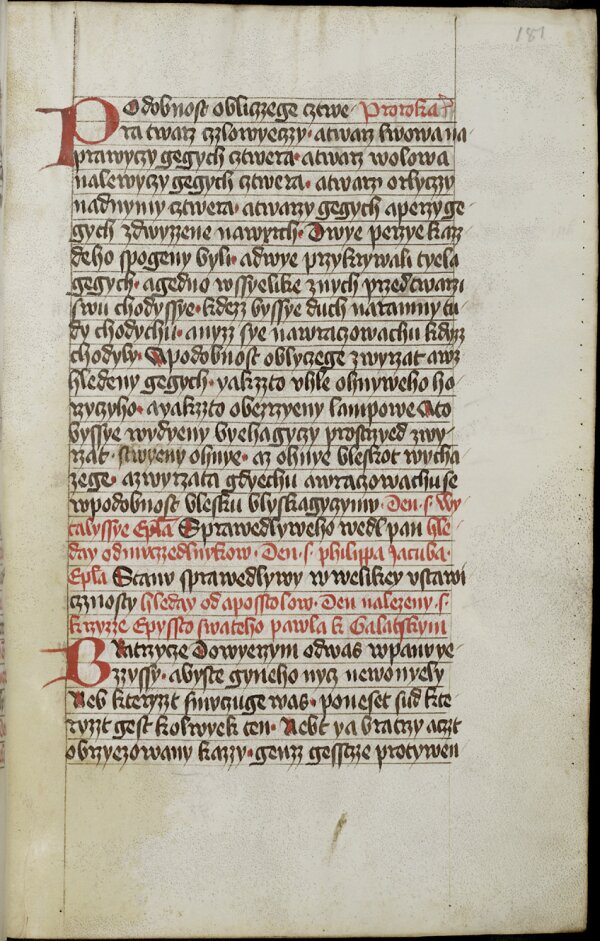 181
Podobnost obliczege cztwe Proroka
ra twarz czlowyeczy · atwarz lwowa na
prawyczy gegych cztwera · atwarz wolowa
nalewyczy gegych cztwera · atwarz orlyczy
nadnymy cztwera · atwarzy gegych aperzy ge
gych zdwyzzene nawyrch · Dwye perzye kaz
deho spogeny byli · adwye przykrywali tyela
gegych · agedno wssyelike znych przedtwarzi
swu chodyssye · kdezz byssye duch naramny tu
dy chodychu · anyzz sye nawraczowachu kdyzz
chodyly · Apodobnost oblyczege zwyrzat awz
hledeny gegych · yakzzto vhle ohnyweho ho
rzyczyho · ayakzzto obezrzyeny lampowe Ato
byssye wydyeny byehagyczy prostrzyed zwy
rzat · stwyeny ohnye · az ohnye bleskot wycha
zege · azwyrzata gdyechu awraczowachuse
wpodobnost blesku blyskagyczymu · Den · s · Wy
talyssye Epla Sprawedlyweho wedl pan hle
day odmuczedlnykow · Den · s · philippa Jacuba ·
Epla Stany sprawedlywy wwelikey vstawi
cznosty hleday od aposstolow · Den nalezeny · s ·
krzyzze Epyssto swateho pawla k Galatskym
Bratrzycze Dowyerzym odwas wpanu ye
zzyssy · abyste gyneho nycz newonyely
Neb kteryzzt smyczuge was · poneset sud kte
ryzzt gest kolwyek ten · Nebt ya bratrzy aczt
obrzyezowany kazzy · genzz gesstze protywen